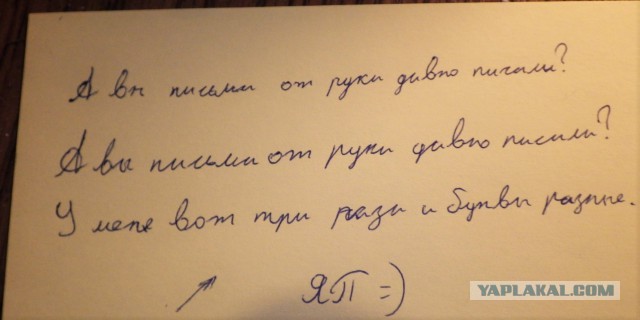 А вы письма от руки давно писали?
А вы письма от руки давно писали?
У меня вот три разы и буквы разные.
ЯП =)
YAPLAKAL.COM